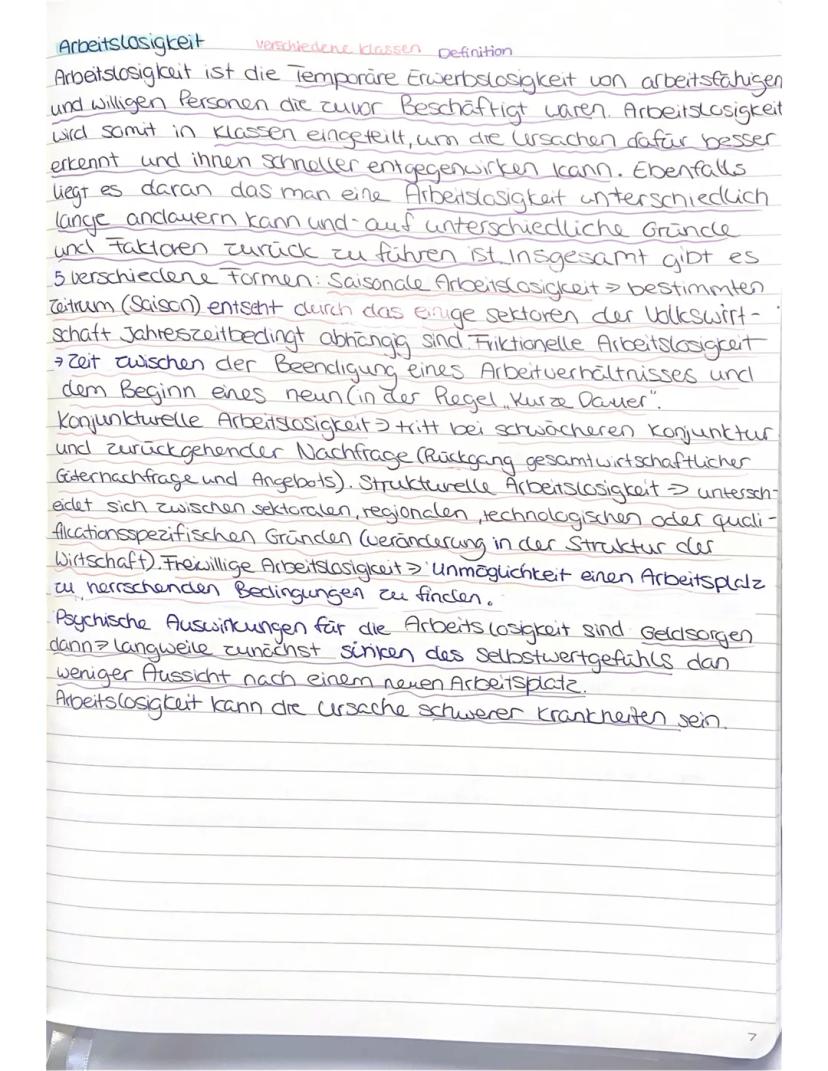 Arbeitslosigkeit verschiedene klassen Definition
Arbeitslosigkeit ist die Temporäre Erwerbslosigkeit von arbeitsfähigen
und willigen Personen die zuvor Beschäftigt waren. Arbeitslosigkeit
wird somit in Klassen eingeteilt, um die Ursachen dafür besser
erkennt und ihnen schneller entgegenwirken kann. Ebenfalls
liegt es daran das man eine Arbeitslosigkeit unterschiedlich
lange andauern kann und auf unterschiedliche Gründe
und Faktoren zurück zu führen ist. Insgesamt gibt es
5 verschiedene Formen: Saisonale Arbeitslosigkeit => bestimmten
Zeitrum (Saison) entseht durch das einige sektoren der Volkswirt-
schaft Jahreszeitbedingt abhängig sind. Friktionelle Arbeitslosigkeit
→ Zeit zwischen der Beendigung eines Arbeitverhältnisses und
dem Beginn eines neun (in der Regel „Kurze Dauer".
Konjunkturelle Arbeitslosigkeit => tritt bei schwächeren Konjunktur
und zurückgehender Nachfrage (Rückgang gesamtwirtschaftlicher
Güternachfrage und Angebots). Strukturelle Arbeitslosigkeit => untersch-
eidet sich zwischen sektoralen, regionalen, technologischen oder quali-
fikationsspezifischen Gründen (veränderung in der Struktur der
Wirtschaft). Freiwillige Arbeitslosigkeit => Unmöglichkeit einen Arbeitsplatz
zu herrschenden Bedingungen zu finden.
Psychische Auswirkungen für die Arbeitslosigkeit sind Geldsorgen
dann => langweile zunächst sinken des Selbstwertgefühls dan
weniger Aussicht nach einem neuen Arbeitsplatz.
Arbeitslosigkeit kann die Ursache schwerer Krankheiten sein.
7